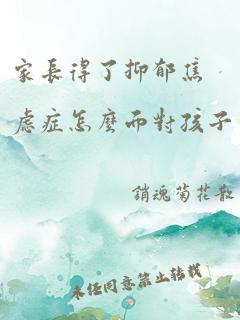 家長得了抑郁焦
慮症怎麼而對孩子
銷魂菊花散
未经同意禁止转载